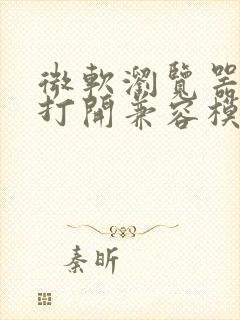 微軟瀏覽器
打開兼容模
秦昕